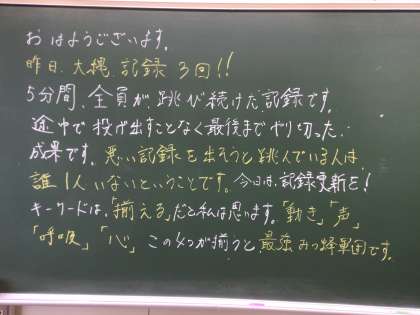 おはようございます。
昨日、大縄、記録3回!!
5分間、全員が、跳び続けた記録です。
途中で投げ出すことなく最後までやり切った、
成果です。悪い記録を出そうと跳んでいる人は、
誰1人いないということです。今日は、記録更新を!
キーワードは、「揃える」だと私は思います。「動き」「声」
「呼吸」「心」この4つが揃うと、最強みつ蜂軍団です。